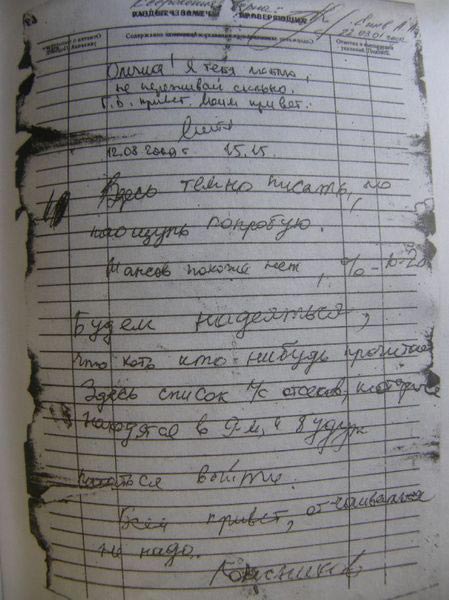 верно
ПРОВЕРЯЮЩИХ
Содержание
Олечка! Я тебя люблю,
не переживай сильно.
Г.В. привет. Моим привет.
12.08 2000 г 15.15.
Здесь темно писать, но
наощупь попробую.
Шансов похоже нет, %-10-20
Будем надеяться,
что хоть кто-нибудь прочитает
Здесь список л/с отсеков, которые
находятся в 9-м, и будут
пытаться выйти.
Всем привет, отчаиваться
не надо.
Колесников